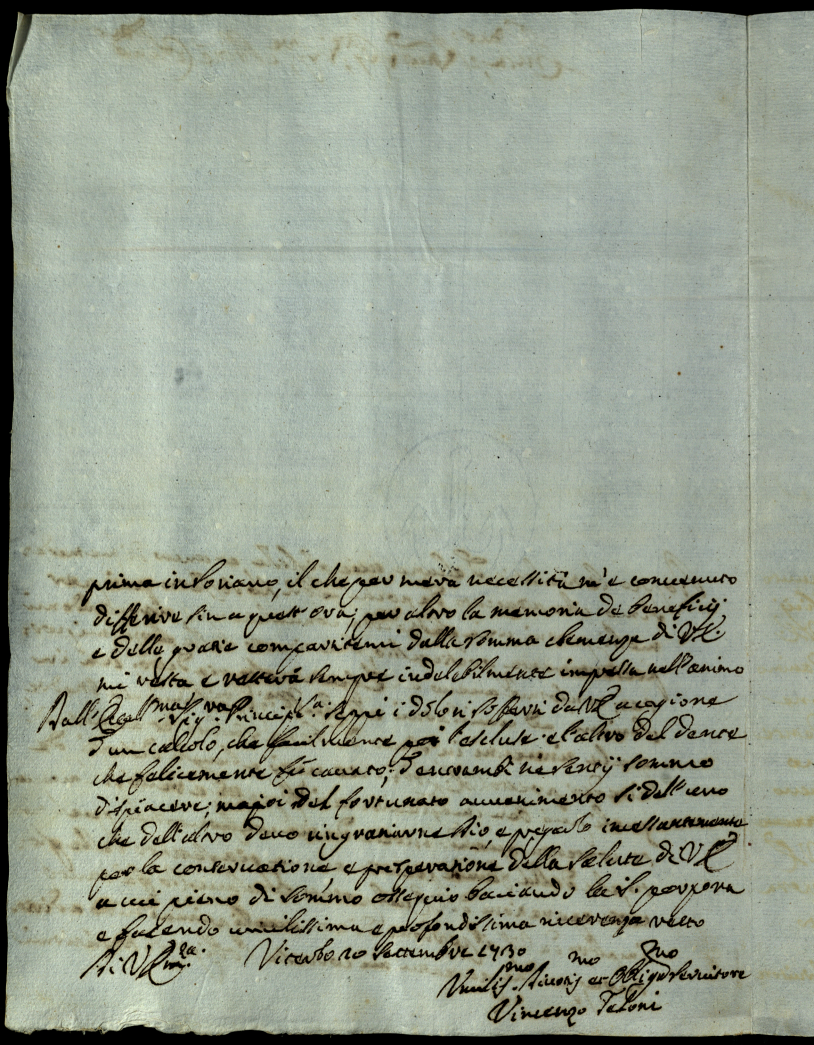 prima in Soriano, il che per mera necessità m'è convenuto
differire sin a quest'ora; per altro la memoria de beneficij
e delle grazie compartitemi dalla somma clemenza di VE.
mi resta e resterà sempre indelebilmente impressa nell'animo
Dall' Ecc.ma Sig.ra Princip.sa seppi i dolori sofferti da VE a cagione
d'un calcolo, che facilmente poi l'escluse e l'altro del dente
che felicemente fù cavato; d'entrambi ne sentij sommo
dispiacere; ma poi del fortunato avvenimento sì dell'uno
che dell'altro devo ringraziarne Dio, e pregarlo incessantemente
per la conservazione e prosperazione della salute di VE
a cui pieno di sommo ossequio baciando la S. porpora
e facendo umilissima e profondissima riverenza resto
Di VE Viterbo 20 Settembre 1730
Umilis.mo Divotis.mo et Oblig.mo Servitore
Vincenzo